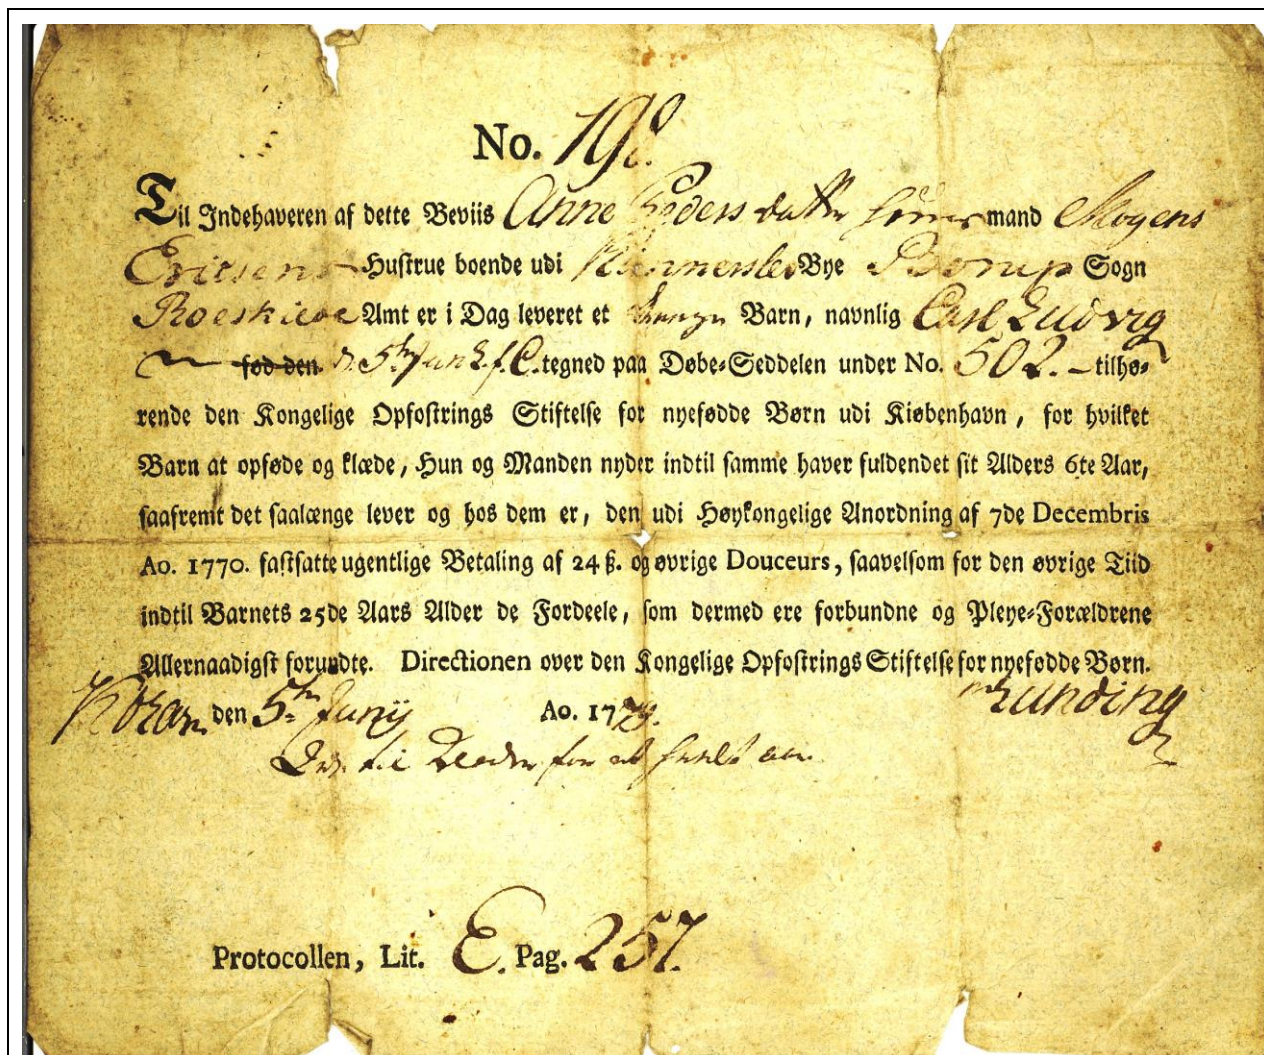 No. 190.
Til Indehaveren af dette Beviis Anne Peders datter mand Mogens
Ericsens Hustrue boende udi Bye Borup Sogn
Roeskilde Amt er i Dag leveret et Barn, navnlig Carl Ludvig
fød den d. 5te Juny tegned paa Døbe-Seddelen under No. 502. tilhø-
rende den Kongelige Opfostrings Stiftelse for nyefødde Børn udi Kiøbenhavn, for hvilket
Barn at opføde og klæde, Hun og Manden nyder indtil samme haver fuldendet sit Alders 6te Aar,
saafremt det saalænge lever og hos dem er, den udi Høykongelige Anordning af 7de Decembris
Ao. 1770. fastsatte ugentlige Betaling af 24 ß. og øvrige Douceurs, saavelsom for den øvrige Tiid
indtil Barnets 25de Aars Alder de Fordeele, som dermed ere forbundne og Pleye-Forældrene
Allernaadigst forundte. Directionen over den Kongelige Opfostrings Stiftelse for nyefødde Børn.
den 5te Junij Ao. 17
Protocollen, Lit. E. Pag. 257.